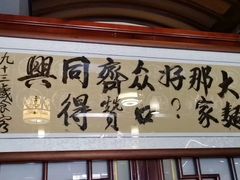 大麵
那家
好？
众口
齊贊
同得
興
九十三歲